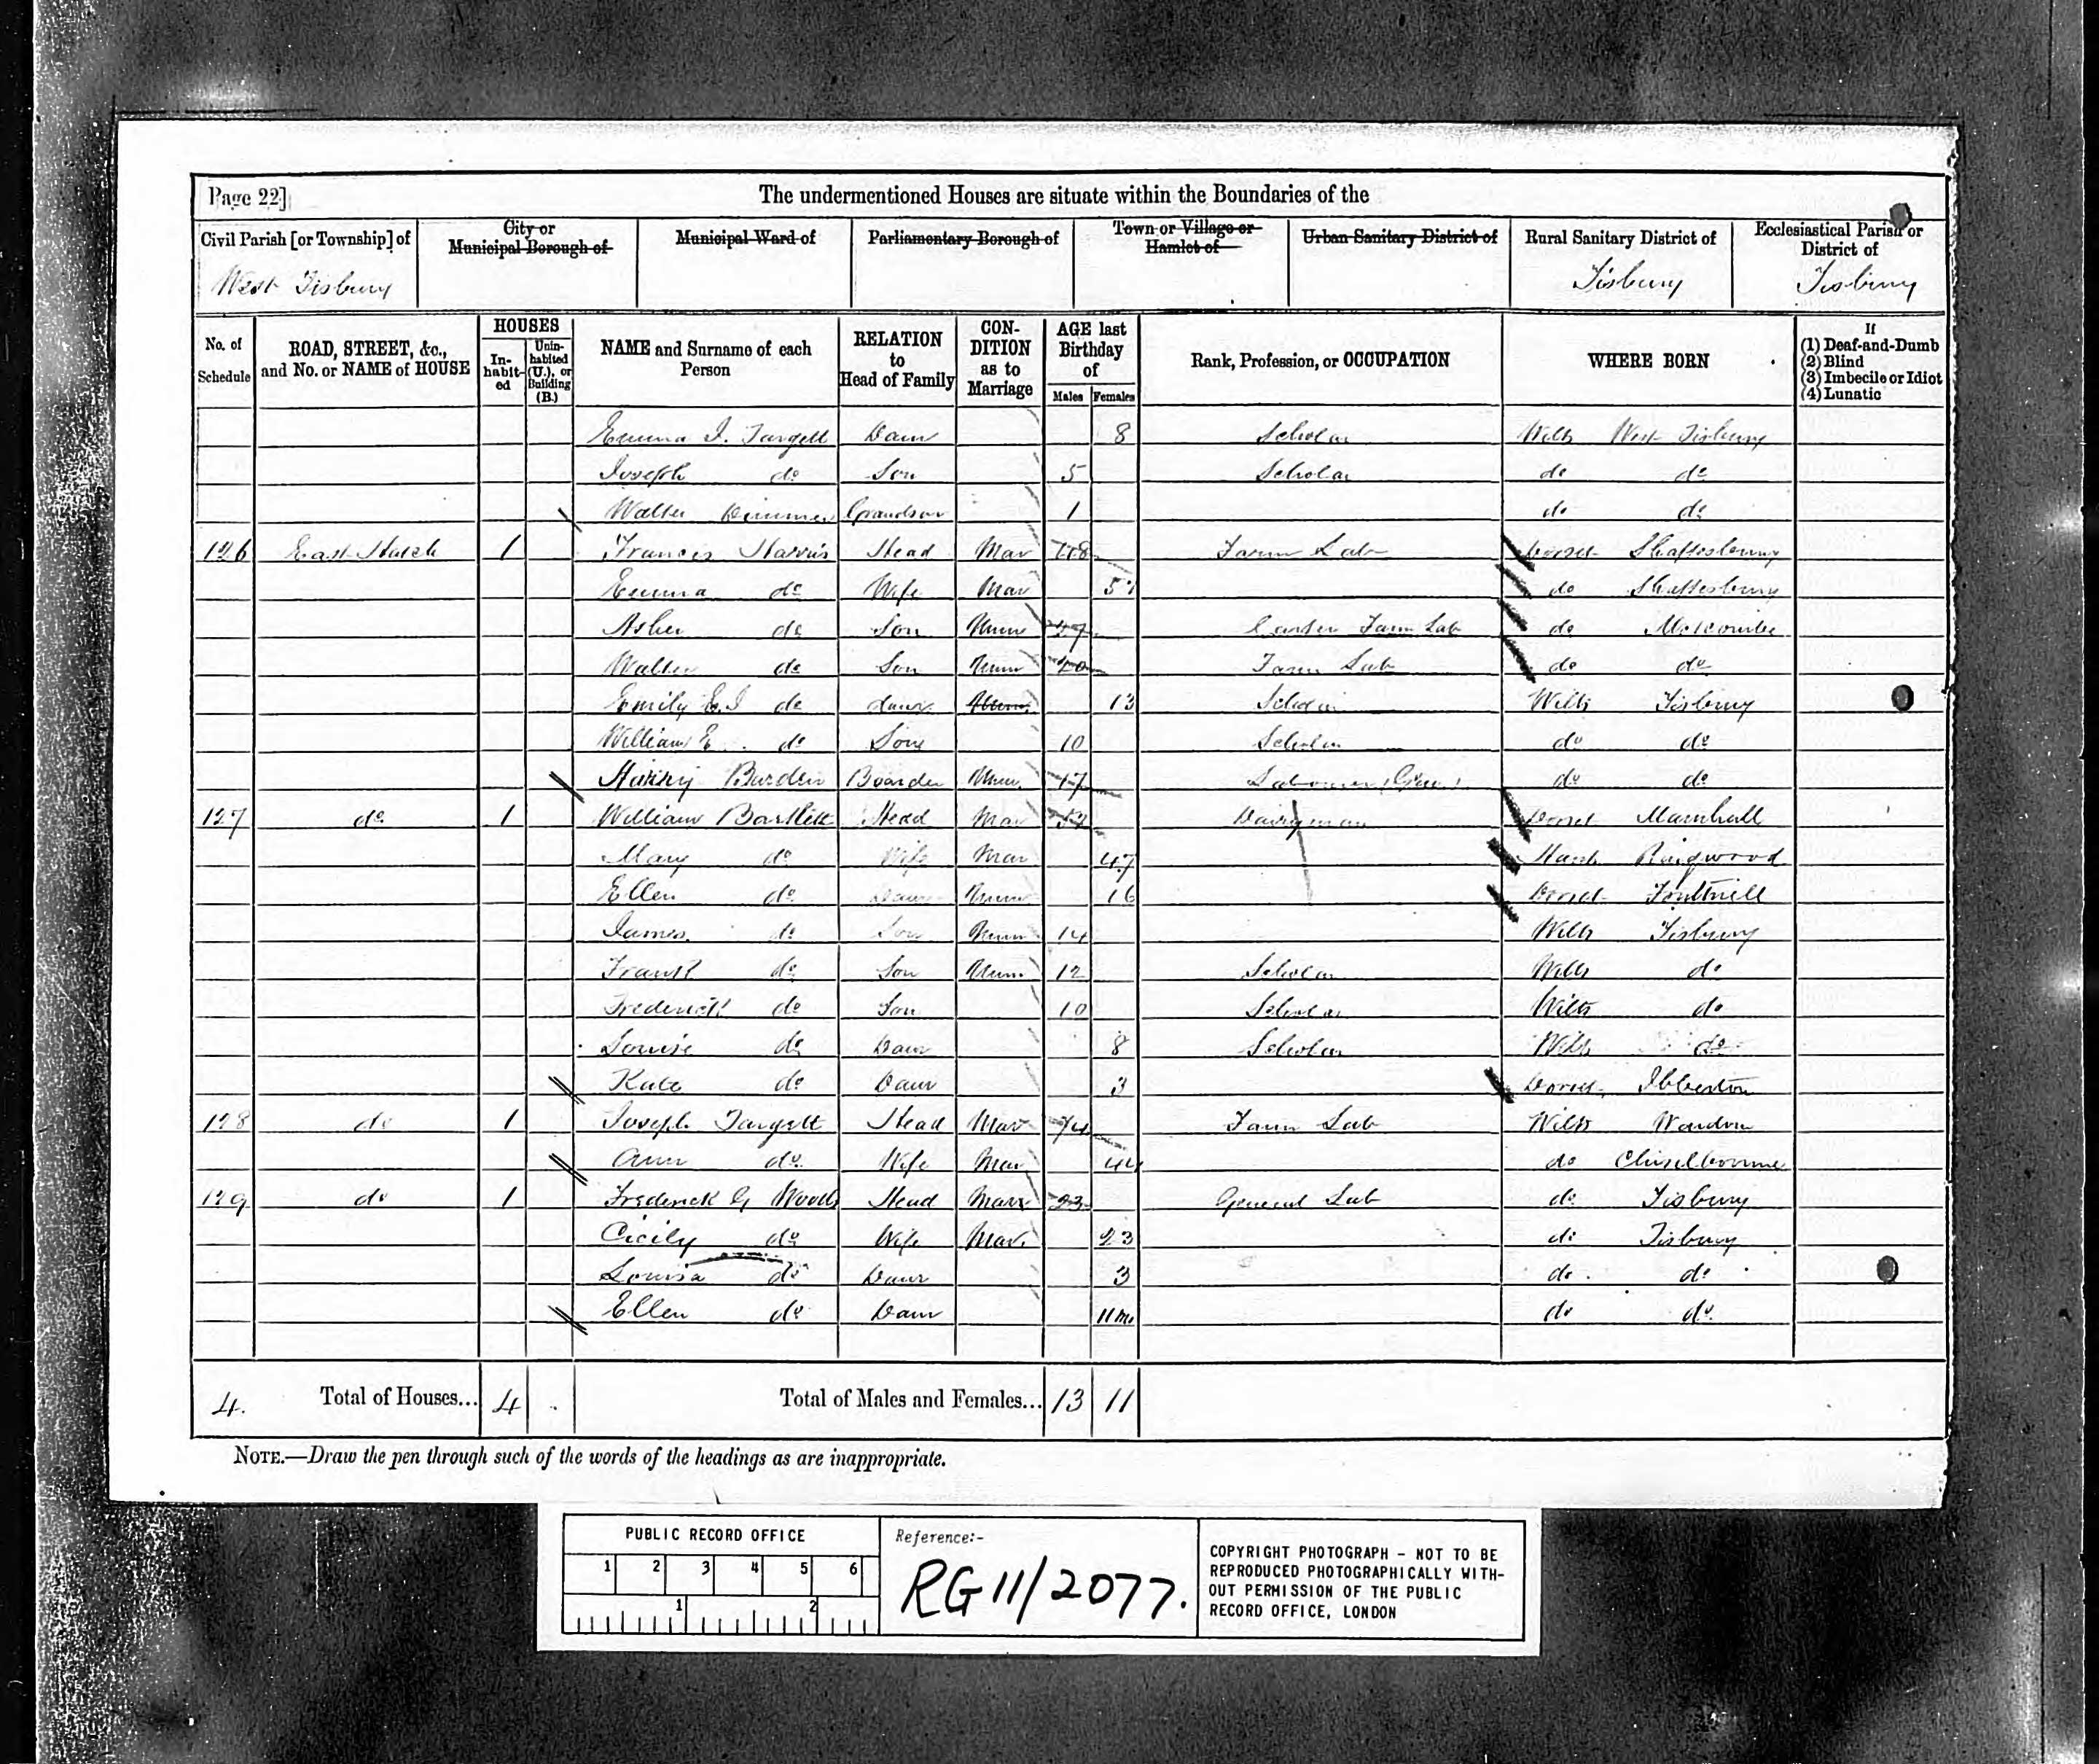 Page 22]
The undermentioned Houses are situate within the Boundaries of the
Civil Parish [or Township] of
City or Municipal Borough of
Municipal Ward of
Parliamentary Borough of
Town or Village or Hamlet of
Urban Sanitary District of
Rural Sanitary District of
Ecclesiastical Parish or District of
West Tisbury
Tisbury
Tisbury
No. of Schedule
ROAD, STREET, &c., and No. or NAME of HOUSE
HOUSES
In-habit-ed
Unin-habited (U.), or Building (B.)
NAME and Surname of each Person
RELATION to Head of Family
CON-DITION as to Marriage
AGE last Birthday of
Males
Females
Rank, Profession, or OCCUPATION
WHERE BORN
If
(1) Deaf-and-Dumb
(2) Blind
(3) Imbecile or Idiot
(4) Lunatic
Emma J. Targett Daur 8 Scholar Wilts West Tisbury
Joseph do Son 5 Scholar do do
Walter Grandson 1 do do
126 East Hatch 1 Francis Harris Head Mar Farm Lab Dorset Shaftesbury
Emma do Wife Mar do Shaftesbury
Asher do Son Unm Carter Farm Lab do Motcombe
Walter do Son Unm 20 Farm Lab do do
Emily E. J do daur Unm 13 Scholar Wilts Tisbury
William E. do Son 10 Scholar do do
Harry Burden Boarder Unm 17 Labourer (Gen) do do
127 do 1 William Bartlett Head Mar Dairyman Dorset Marnhull
Mary do Wife Mar 47 Hants Ringwood
Ellen do Daur Unm 16 Dorset Fontmell
James do Son Unm 14 Wilts Tisbury
Frank do Son Unm 12 Scholar Wilts do
Frederick do Son 10 Scholar Wilts do
Louise do Daur 8 Scholar Wilts do
Kate do Daur 3 Dorset Ibberton
128 do 1 Joseph Targett Head Mar Farm Lab Wilts Wardour
Ann do Wife Mar 44 do
129 do 1 Frederick G Woods Head Mar 23 General Lab do Tisbury
Cicily do Wife Mar 23 do Tisbury
Louisa do Daur 3 do do
Ellen do Daur 11m do do
4. Total of Houses... 4 Total of Males and Females... 13 11
NOTE.—Draw the pen through such of the words of the headings as are inappropriate.
PUBLIC RECORD OFFICE
1 2 3 4 5 6
1 2
Reference:-
RG 11/2077.
COPYRIGHT PHOTOGRAPH - NOT TO BE
REPRODUCED PHOTOGRAPHICALLY WITH-
OUT PERMISSION OF THE PUBLIC
RECORD OFFICE, LONDON